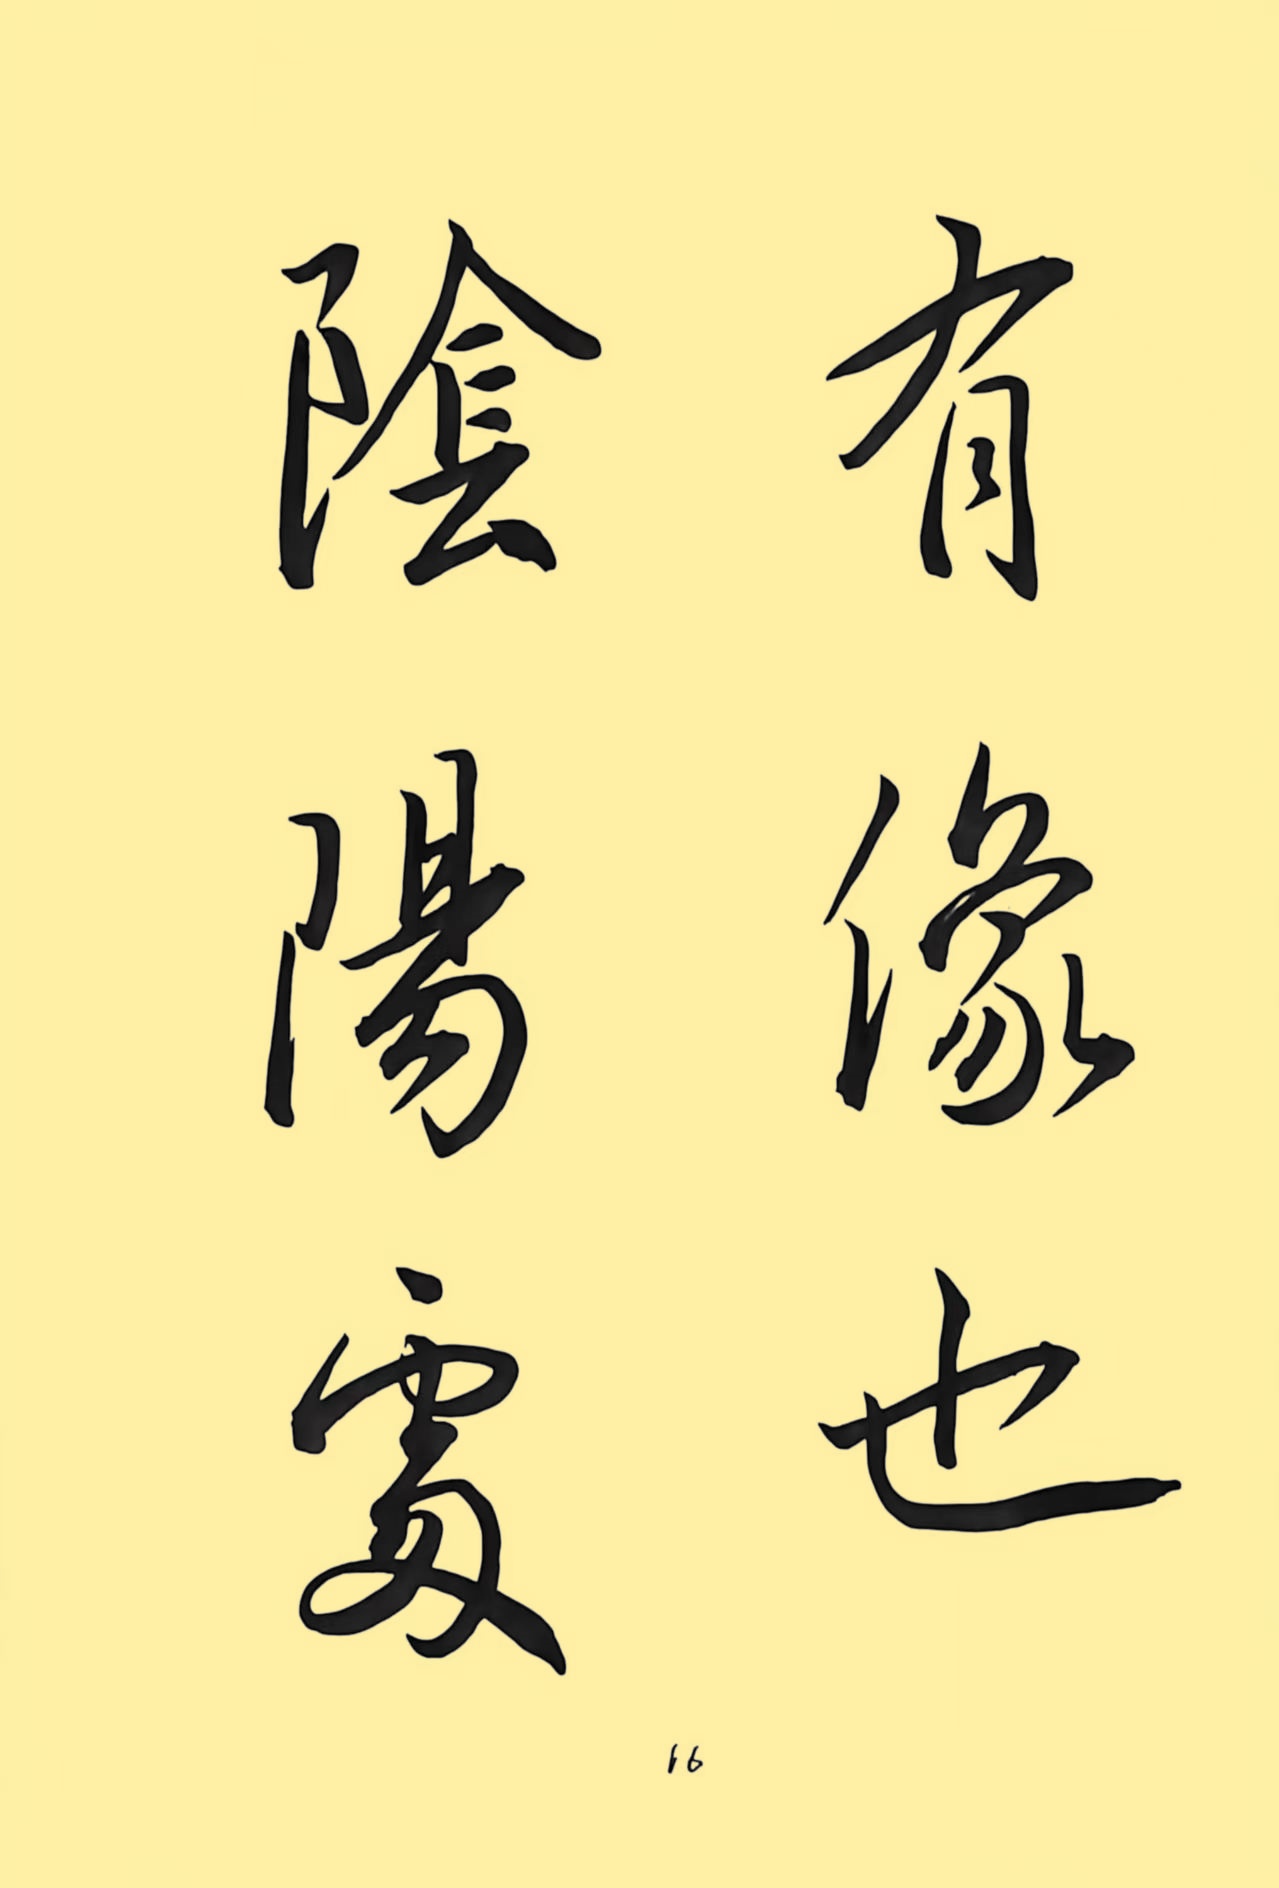 有像也
陰陽處
16